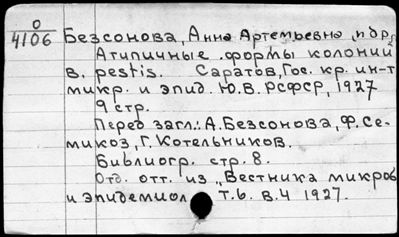 О
4106
Безсонова, Анна Артемьевна, и др.
Атипичные формы колоний
B. pestis. Саратов, Гос. кр. ин-т
микр. и эпид. Ю.В. РСФСР, 1927
9 стр.
Перед загл.: А. Безсонова, Ф. Се-
микоз, Г. Котельников.
Библиогр. стр. 8.
Отд. отт. из „Вестника микроб
и эпидемиол Т.6. в.4 1927.